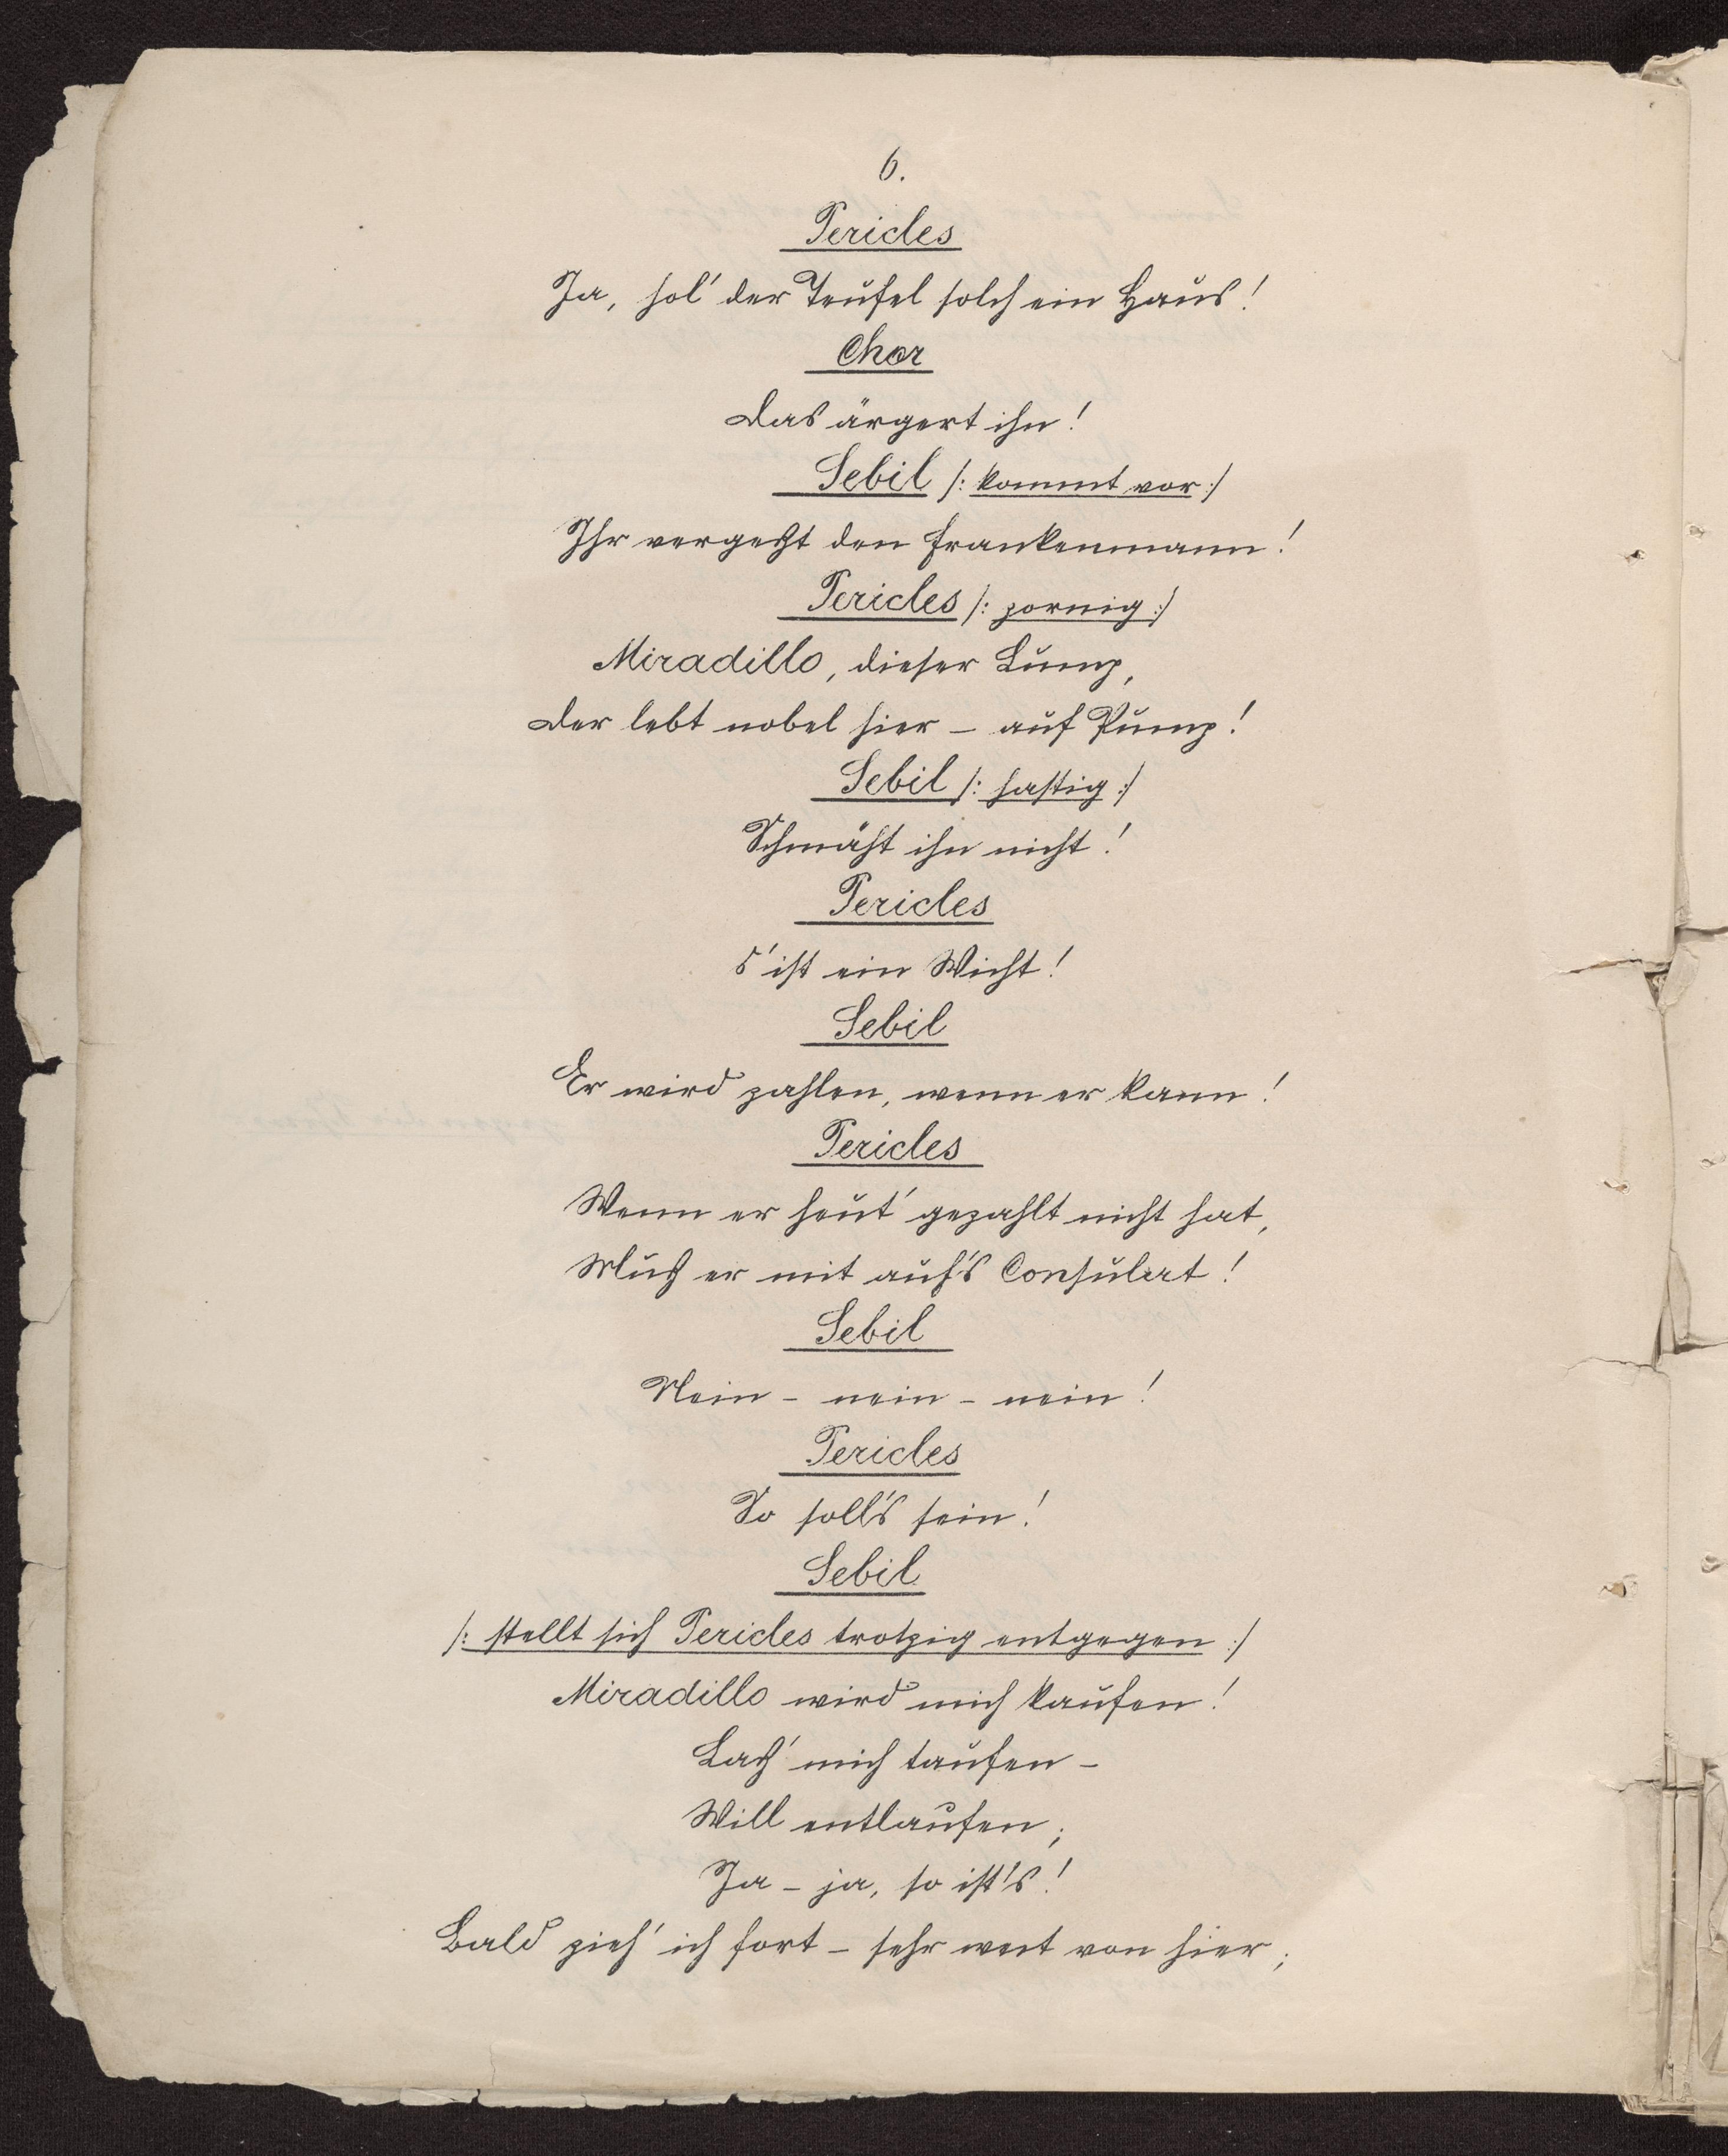 6.
Pericles
Ja, hol' der Teufel solch ein Haus!
Chor
Das ärgert ihn!
Sebil /: kommt vor :/
Ihr vergeßt den Frankenmann!
Pericles /: zornig :/
Miradillo, dieser Lump,
Der lebt nobel hier – auf Pump!
Sebil /: hastig :/
Schmäht ihn nicht!
Pericles
s' ist ein Wicht!
Sebil
Er wird zahlen, wenn er kann!
Pericles
Wenn er heut' gezahlt nicht hat,
Muß er mit auf's Consulat!
Sebil
Nein – nein – nein!
Pericles
So soll's sein!
Sebil
/: stellt sich Pericles trotzig entgegen :/
Miradillo wird mich kaufen!
Laß' mich taufen –
Will entlaufen;
Ja – ja, so ist's!
Bald zieh' ich fort – sehr weit von hier;